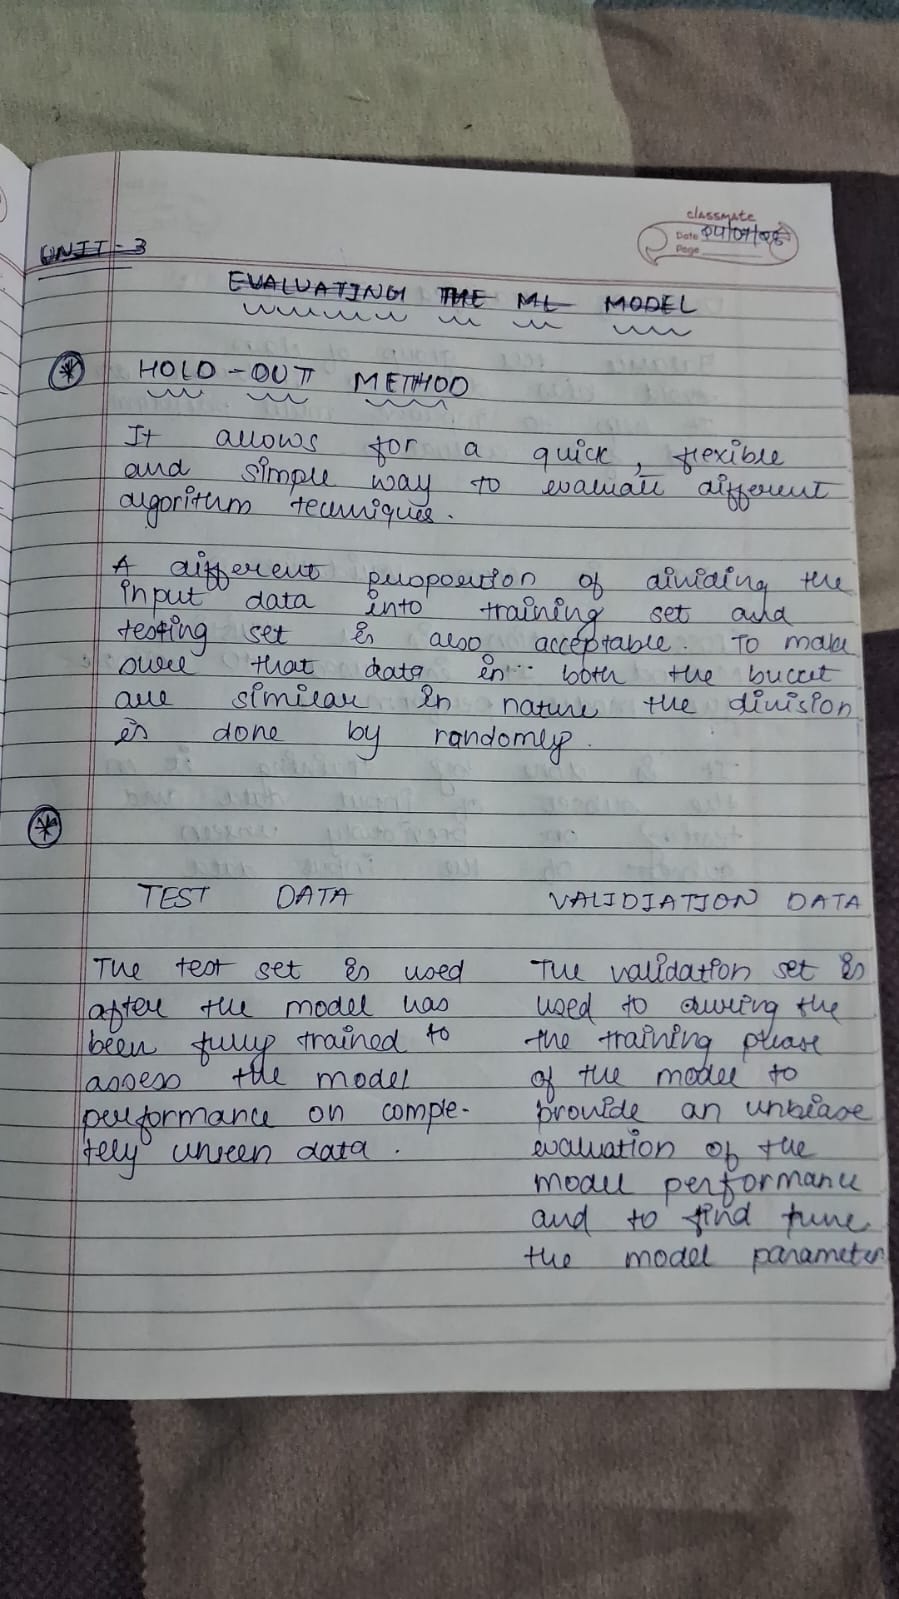 classmate
Date 04/07/25
Page
UNIT-3
EVALUATING THE ML MODEL
* HOLD-OUT METHOD
It allows for a quick, flexible
and simple way to evaluate different
algorithm techniques.
A different proportion of dividing the
input data into training set and
testing set is also acceptable. To make
sure that data in both the bucket
are similar in nature the division
is done by randomly.
*
TEST DATA
VALIDIATION DATA
The test set is used
after the model has
been fully trained to
assess the model
performance on comple-
tely unseen data.
The validation set is
used to during the
the training phase
of the model to
provide an unbiase
evaluation of the
model performance
and to find tune
the model parameter